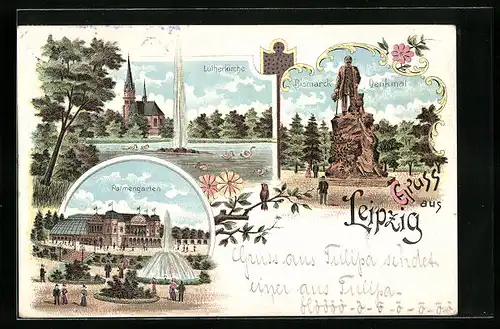 Lutherkirche
Bismarck Denkmal
Palmengarten
Gruss
aus
Leipzig
Gruss aus Tulipa sendet
einer aus Tulipa